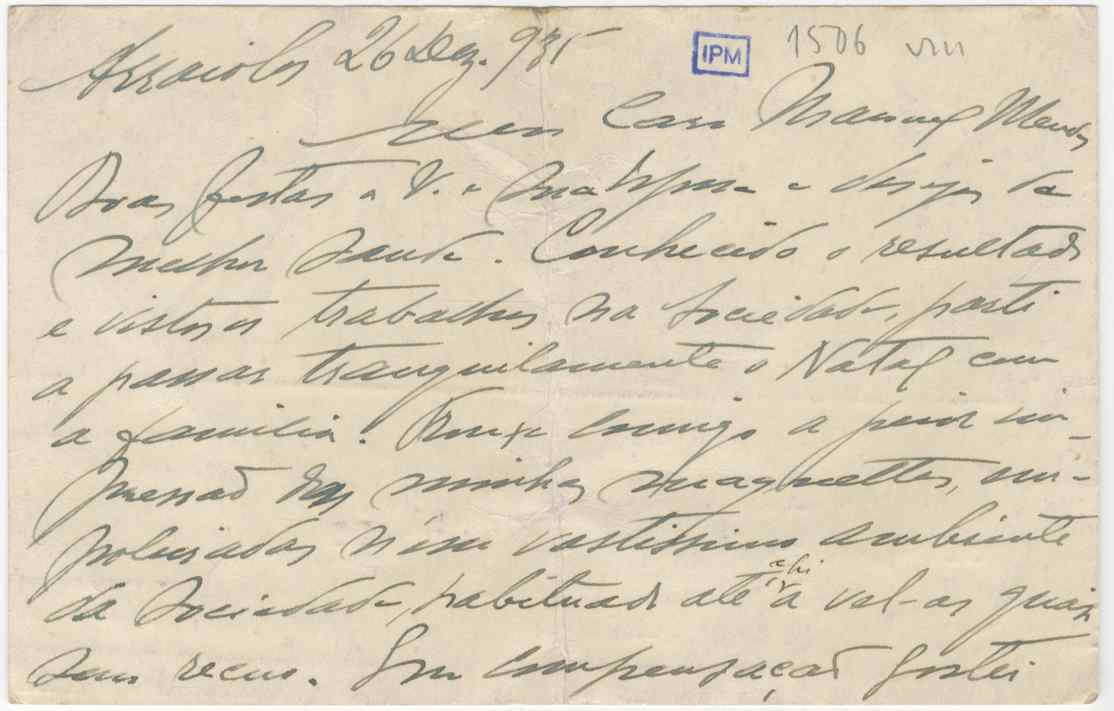 Arraiolos 26 Dez. 935
IPM
1506 VIII
Meu Caro Manuel Mendes
Boas festas a V. e sua Esposa e desejos da
melhor saude. Conhecido o resultado
e vistos os trabalhos na Sociedade, parti
a passar tranquilamente o Natal com
a familia. Trouxe comigo a peior im-
pressão das minhas maquettes,
n'um vastissimo ambiente
da Sociedade, habituado até ahi a vel-as quasi
sem recuo. Em compensação gostei